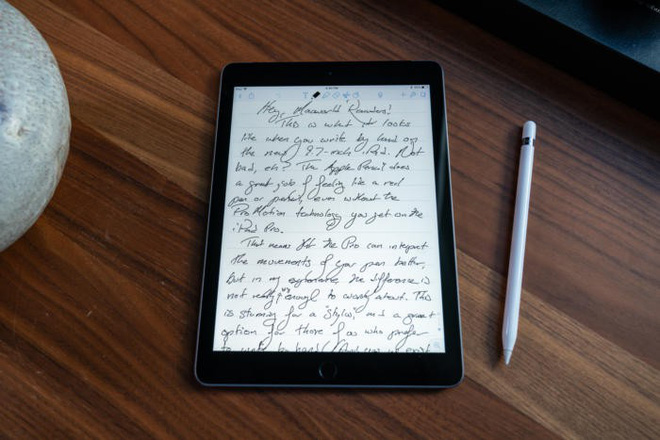 Hey, Macworld Readers!
This is what it looks
like when you write by hand on
the new 9.7-inch iPad. Not
bad, eh? The Apple Pencil does
a great job of feeling like a real
pen or pencil, even without the
ProMotion technology you get on the
iPad Pro.
That means that the Pro can interpret
the movements of your pen better,
but in my experience the difference is
not really enough to worry about. This
is stunning for a "stylus," and a great
option for those of us who prefer
to write by hand! (And yes, we exist